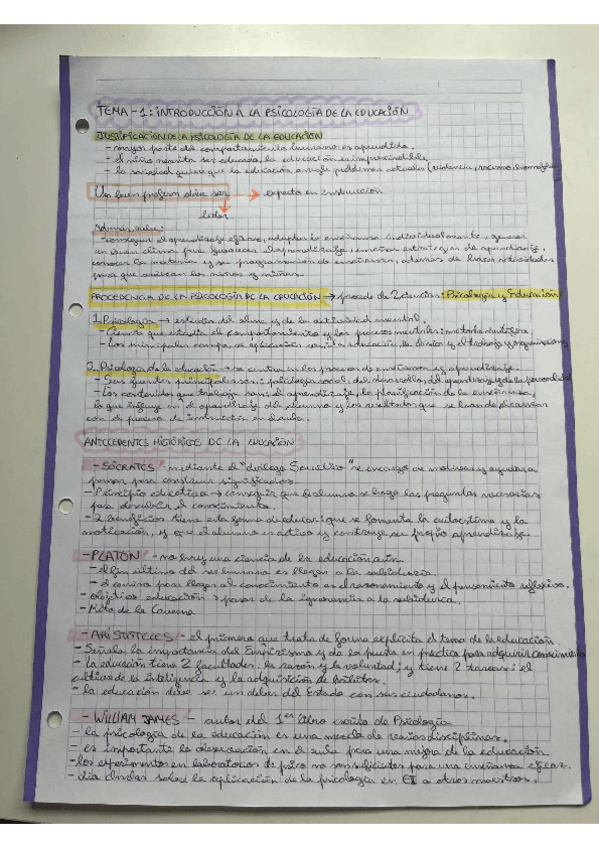 TEMA-1: INTRODUCCIÓN A LA PSICOLOGÍA DE LA EDUCACIÓN
JUSTIFICACIÓN DE LA PSICOLOGÍA DE LA EDUCACIÓN
- mayor parte del comportamiento humano es aprendido.
- el niño necesita ser educado, la educación es imprescindible.
- la sociedad quiere que la educación arregle problemas actuales (violencia, racismo,
Un buen profesor debe ser → experto en instrucción
líder
Además, debe:
- conseguir el aprendizaje eficaz, adaptar la enseñanza individualmente, generar
un buen clima para favorecer el aprendizaje, enseñar estrategias de aprendizaje,
conocer la materia y su programación de enseñanza, además de hacer actividades
para que
los niños y niñas.
PROCEDENCIA DE LA PSICOLOGÍA DE LA EDUCACIÓN → procede de 2 ciencias: Psicología y Educación
1. Psicología → estudio del alma y de la actividad mental.
- Ciencia que estudia el comportamiento y los procesos mentales: método científico
- Los principales campos de aplicación son: la educación, la clínica y el trabajo y organizaciones
2. Psicología de la educación → se centra en los procesos de enseñanza y aprendizaje.
- Sus fuentes principales son: psicología social, del desarrollo, del aprendizaje y de la personalidad
- Los contenidos que trabaja son: el aprendizaje, la planificación de la enseñanza,
lo que influye en el aprendizaje del alumno y los resultados que se han de alcanzar
con el proceso de instrucción en el aula.
ANTECEDENTES HISTÓRICOS DE LA EDUCACIÓN
- SÓCRATES: mediante el "diálogo Socrático" se encarga de motivar y ayudar a
pensar para construir significados.
- Principio educativo → conseguir que el alumno se haga las preguntas necesarias
para descubrir el conocimiento.
- 2 beneficios tiene esta forma de educar: que se fomenta la autoestima y la
motivación, y que el alumno es activo y construye su propio aprendizaje.
- PLATÓN: - no hay una ciencia de la educación aún
- el fin último del ser humano es llegar a la sabiduría.
- el camino para llegar al conocimiento es el razonamiento y el pensamiento reflexivo.
- objetivo educación → pasar de la ignorancia a la sabiduría.
- Mito de la Caverna
- ARISTÓTELES: - el primero que trata de forma explícita el tema de la educación
- Señala la importancia del Empirismo y da la puesta en práctica para adquirir conocimiento
- La educación tiene 2 facultades: la razón y la voluntad; y tiene 2 tareas: el
cultivo de la inteligencia y la adquisición de hábitos.
- la educación debe ser un deber del Estado con sus ciudadanos.
- WILLIAM JAMES - autor del 1er libro escrito de Psicología
- la psicología de la educación es una mezcla de varias disciplinas.
- es importante la observación en el aula para una mejora de la educación
- los experimentos en laboratorios de psico no son suficientes para una enseñanza eficaz.
- dio charlas sobre la aplicación de la psicología en
a otros maestros.